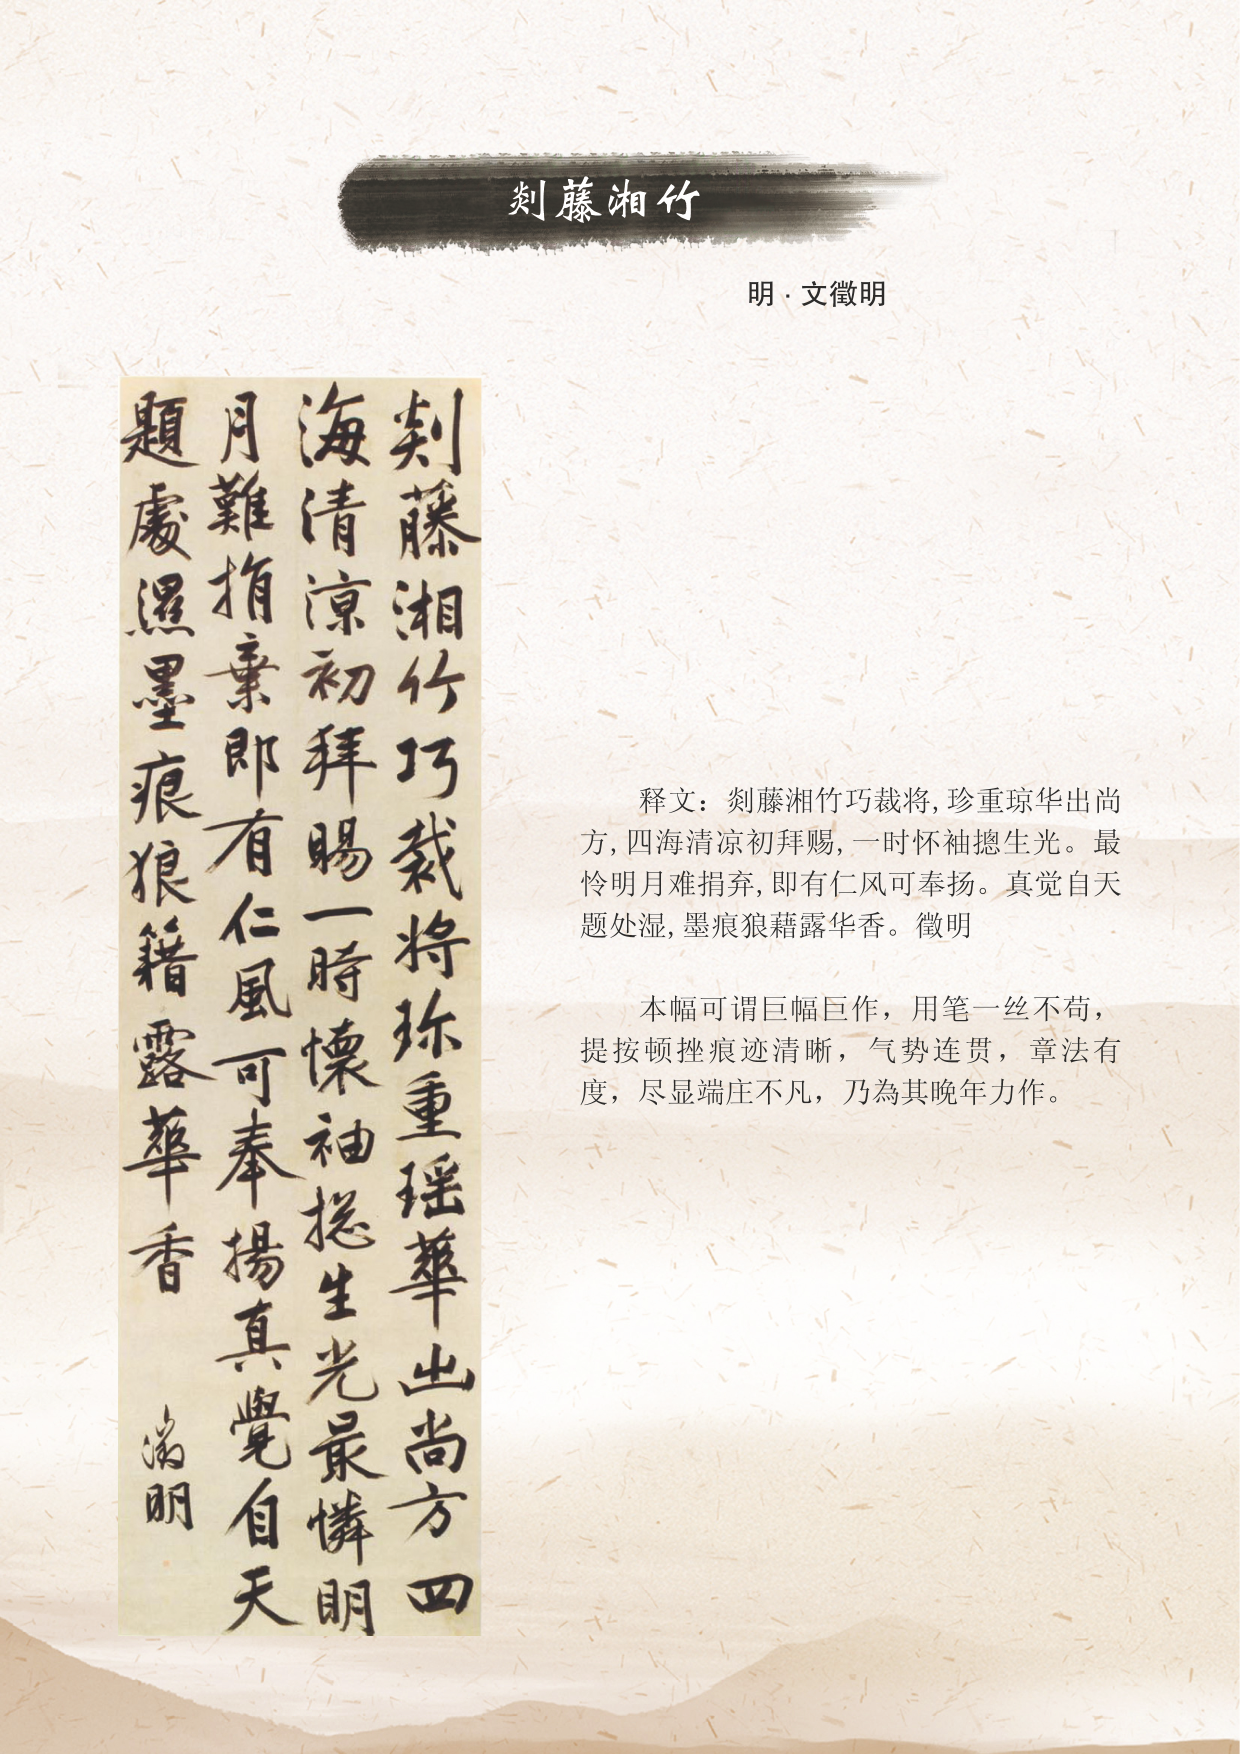 剡藤湘竹
明·文徵明
剡藤湘竹巧裁将珎重瑶華出尚方四
海清涼初拜賜一時懷袖摠生光最憐明
月難捐棄即有仁風可奉揚真覺自天
題處濕墨痕狼籍露華香
徵明
释文：剡藤湘竹巧裁将,珍重琼华出尚
方,四海清凉初拜赐,一时怀袖摠生光。最
怜明月难捐弃,即有仁风可奉扬。真觉自天
题处湿,墨痕狼藉露华香。徵明
本幅可谓巨幅巨作，用笔一丝不苟，
提按顿挫痕迹清晰，气势连贯，章法有
度，尽显端庄不凡，乃為其晚年力作。